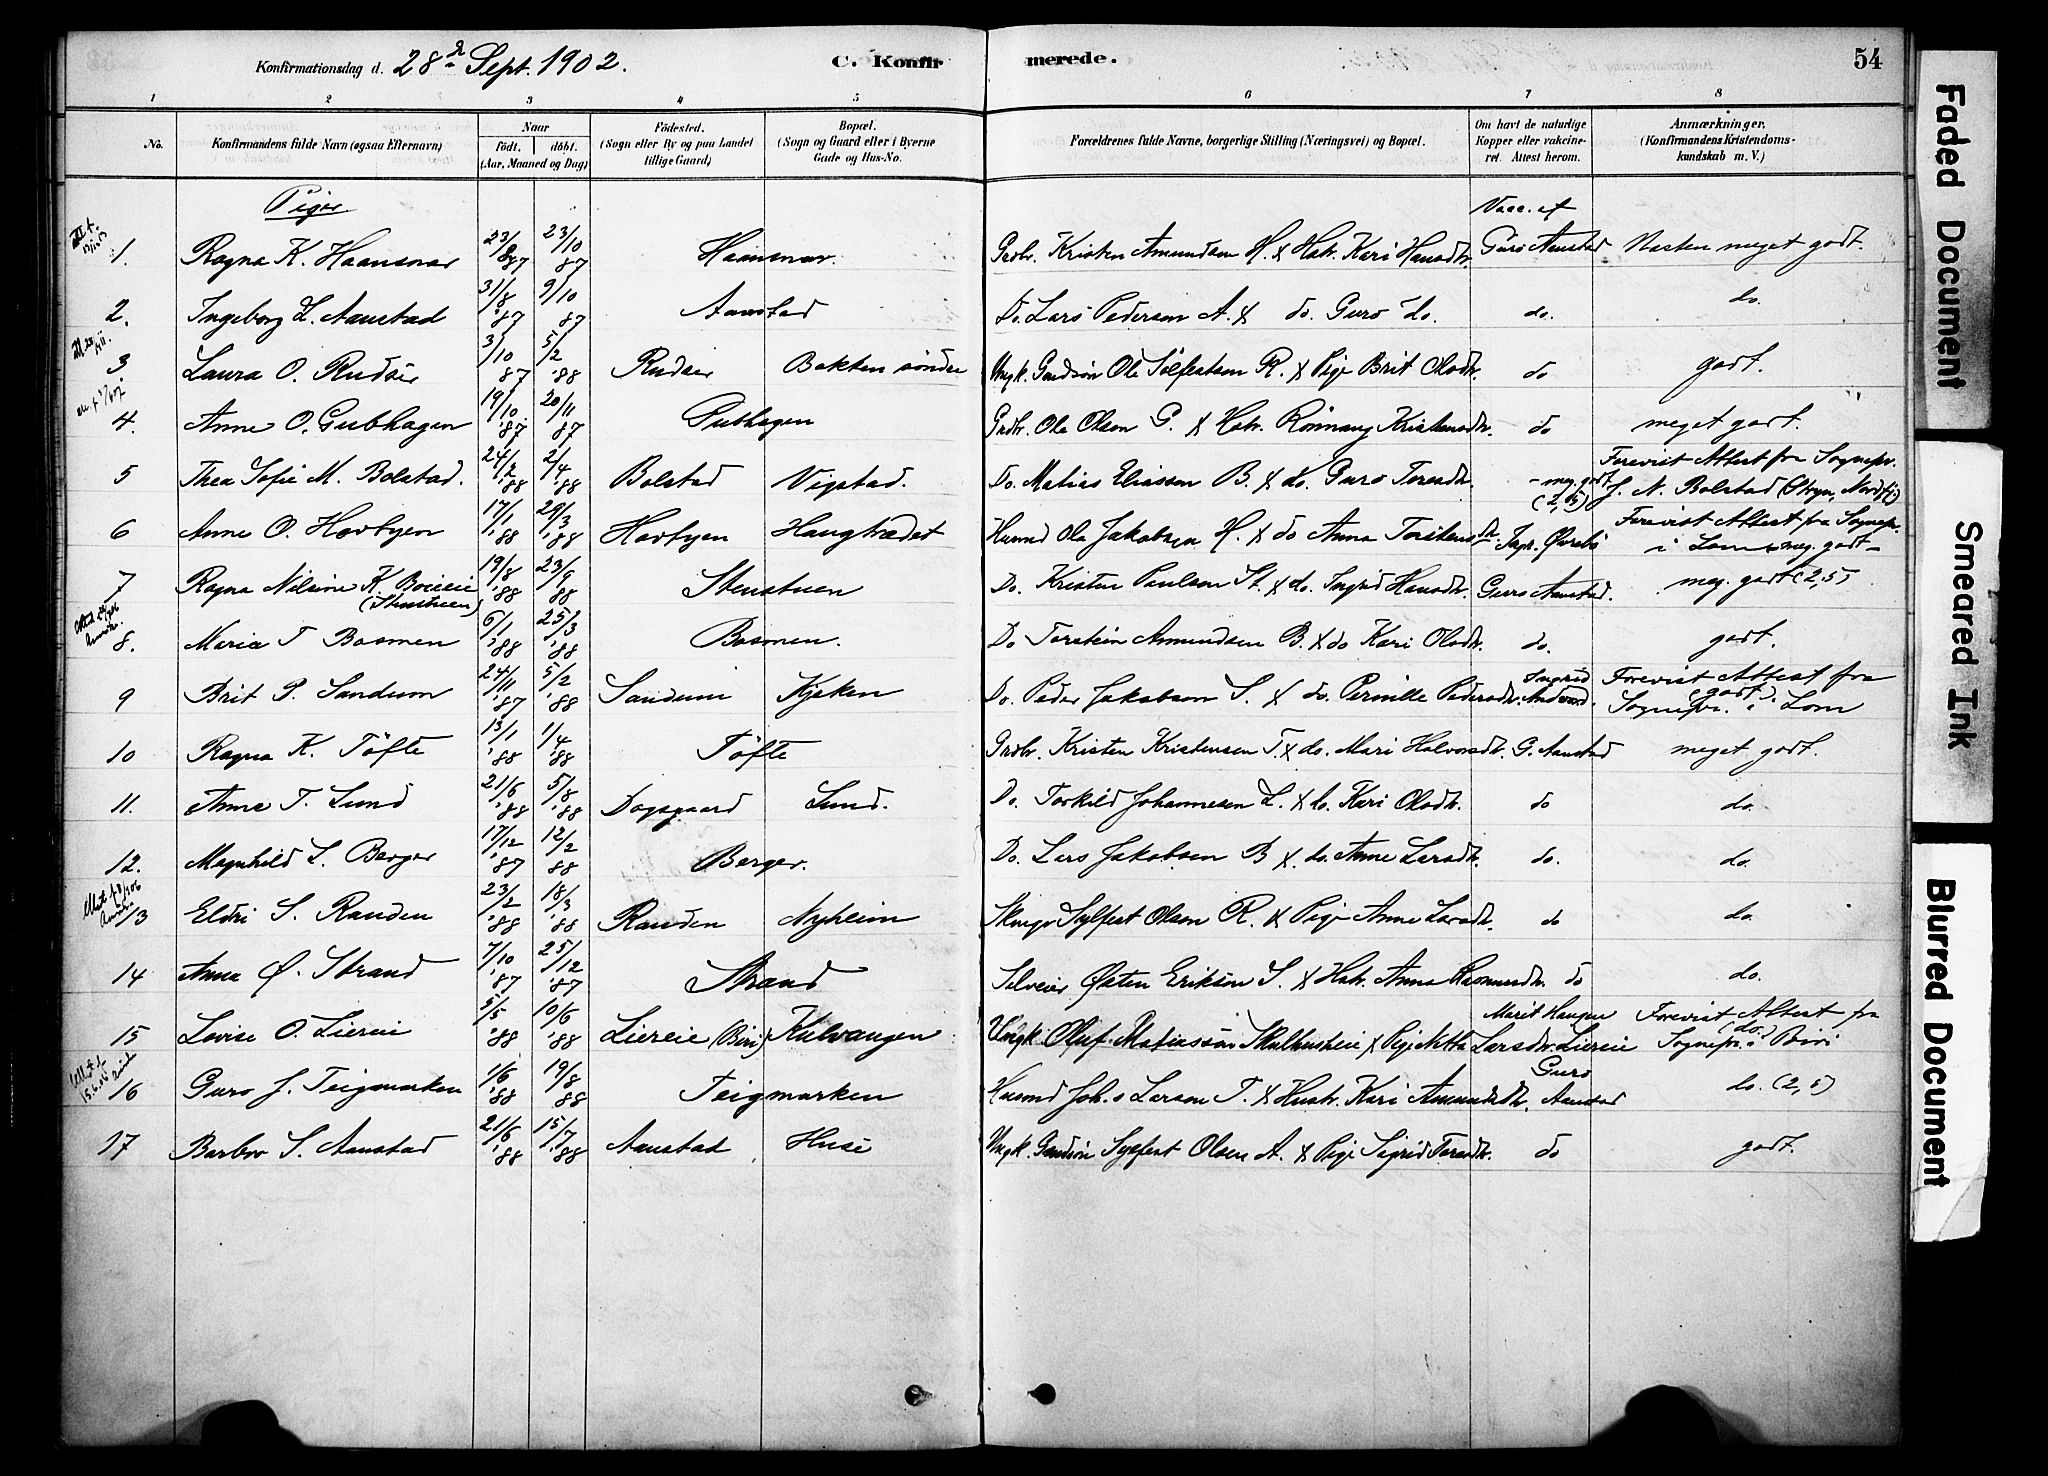 Konfirmationsdag d. 28de Sept. 1902.
C. Konfirmerede.
54
1 2 3 4 5 6 7 8
No. Konfirmandens fulde Navn (ogsaa Efternavn) Naar født. døbt. (Aar, Maaned og Dag) Fødested. (Sogn eller By og paa Landet tillige Gaard) Bopæl. (Sogn og Gaard eller i Byerne Gade og Hus-No. Forældrenes fulde Navne, borgerlige Stilling (Næringsvei) og Bopæl. Om havt de naturlige Kopper eller vakcineret. Attest herom. Anmærkninger. (Konfirmandens Kristendomskundskab m. V.)
Piger Vacc. af
1. Ragna K. Haansnar 23/8 87 23/10 87 Haansnar. Grdbr. Kristen Amundsen H. & Hstr. Kari Hansdtr. Guro Aanstad Næsten meget godt.
2. Ingeborg L. Aanstad 31/8 '87 9/10 87 Aanstad Do. Lars Pedersen A. & do. Guro do. do. do.
3 Laura O. Rudsei 31/10 '87 5/2 '88 Rudsei Bakken søndre Ungk. Grdsøn Ole Sølfestsen R. & Pige Brit Olsdtr. do godt.
4. Anne O. Gubhagen 19/10 '87 20/11 87 Gubhagen Grdbr. Ole Olsen G. & Hstr. Rønnaug Kristensdtr. do meget godt.
5 Thea Sofie M. Bolstad. 24/2 '88 2/4 '88 Bolstad Vigstad. Do. Matias Eliassen B. & do. Guro Toresdtr. - meg. godt (2,5) Forevist Attest fra Sognepr. J. N. Bolstad (Stryn, Nordfj)
6 Anne O. Hovbyen 17/1 '88 29/3 '88 Hovbyen Haugtrædet Husmd Ole Jakobsen H. & do Anna Torstensdtr. Ingr. Øvrebø Forevist Attest fra Sognepr. i Lom meg. godt -
7 Ragna Nilsine K. Boieie (Stenstuen) 19/8 '88 23/9 88 Stenstuen Do. Kristen Paulsen St. & do. Ingrid Hansdtr. Guro Aanstad. meg. godt (2,5)
8. Maria T Bosmen 6/1 '88 25/3 '88 Bosmen. Do Torstein Amundsen B. & do Kari Olsdtr. do. godt.
9 Brit P. Sandum 24/11 '87 5/2 '88 Sandum Kjøken Do. Peder Jakobsen S. & do. Pernille Pedersdtr. Ingrid Andvord. Forevist Attest fra Sognepr. (godt) i Lom
10 Ragna K. Tøfte 13/1 '88 1/4 '88 Tøfte Grdbr. Kristen Kristensen T. & do. Mari Halvorsdtr. G. Aanstad meget godt.
11. Anne T. Lund 21/6 '88 5/8 '88 Dagsgaard Lund. Do. Torkild Johannesen L. & do. Kari Olsdtr. do do.
12. Magnhild L. Berger 17/12 '87 12/2 88 Berger. Do. Lars Jakobsen B & do. Anne Larsdtr. do. do.
13 Eldri S. Randen 23/2 '88 18/3 '88 Randen Nyheim Sylfest Olsen R. & Pige Anne Larsdtr. do do.
14 Anna Ø. Strand 7/10 '87 25/12 '87 Strand Selveier Østen Erikson S. & Hstr. Anna Rasmusdtr. do do.
15 Lovise O. Liereie 5/5 '88 10/6 '88 Liereie (Biri) Kulvangen Ungk Oluf Matiassøn Skulhusheie & Pige Netta Larsdtr. Liereie Marit Haugen Forevist Attest fra Sognepr. (do.) i Biri
16 Guro J. Teigmarken 1/6 '88 19/8 88 Teigmarken Husmd Joh.s Larsen T. & Hustr. Kari Amundsdtr. Guro Aanstad do. (2,5)
17 Barbro S. Aanstad 21/6 '88 15/7 '88 Aanstad Huse Ungk. Grdsøn Sylfest Olsen A. & Pige Sigrid Toresdtr. do godt.
Faded Document
Smeared Ink
Blurred Document